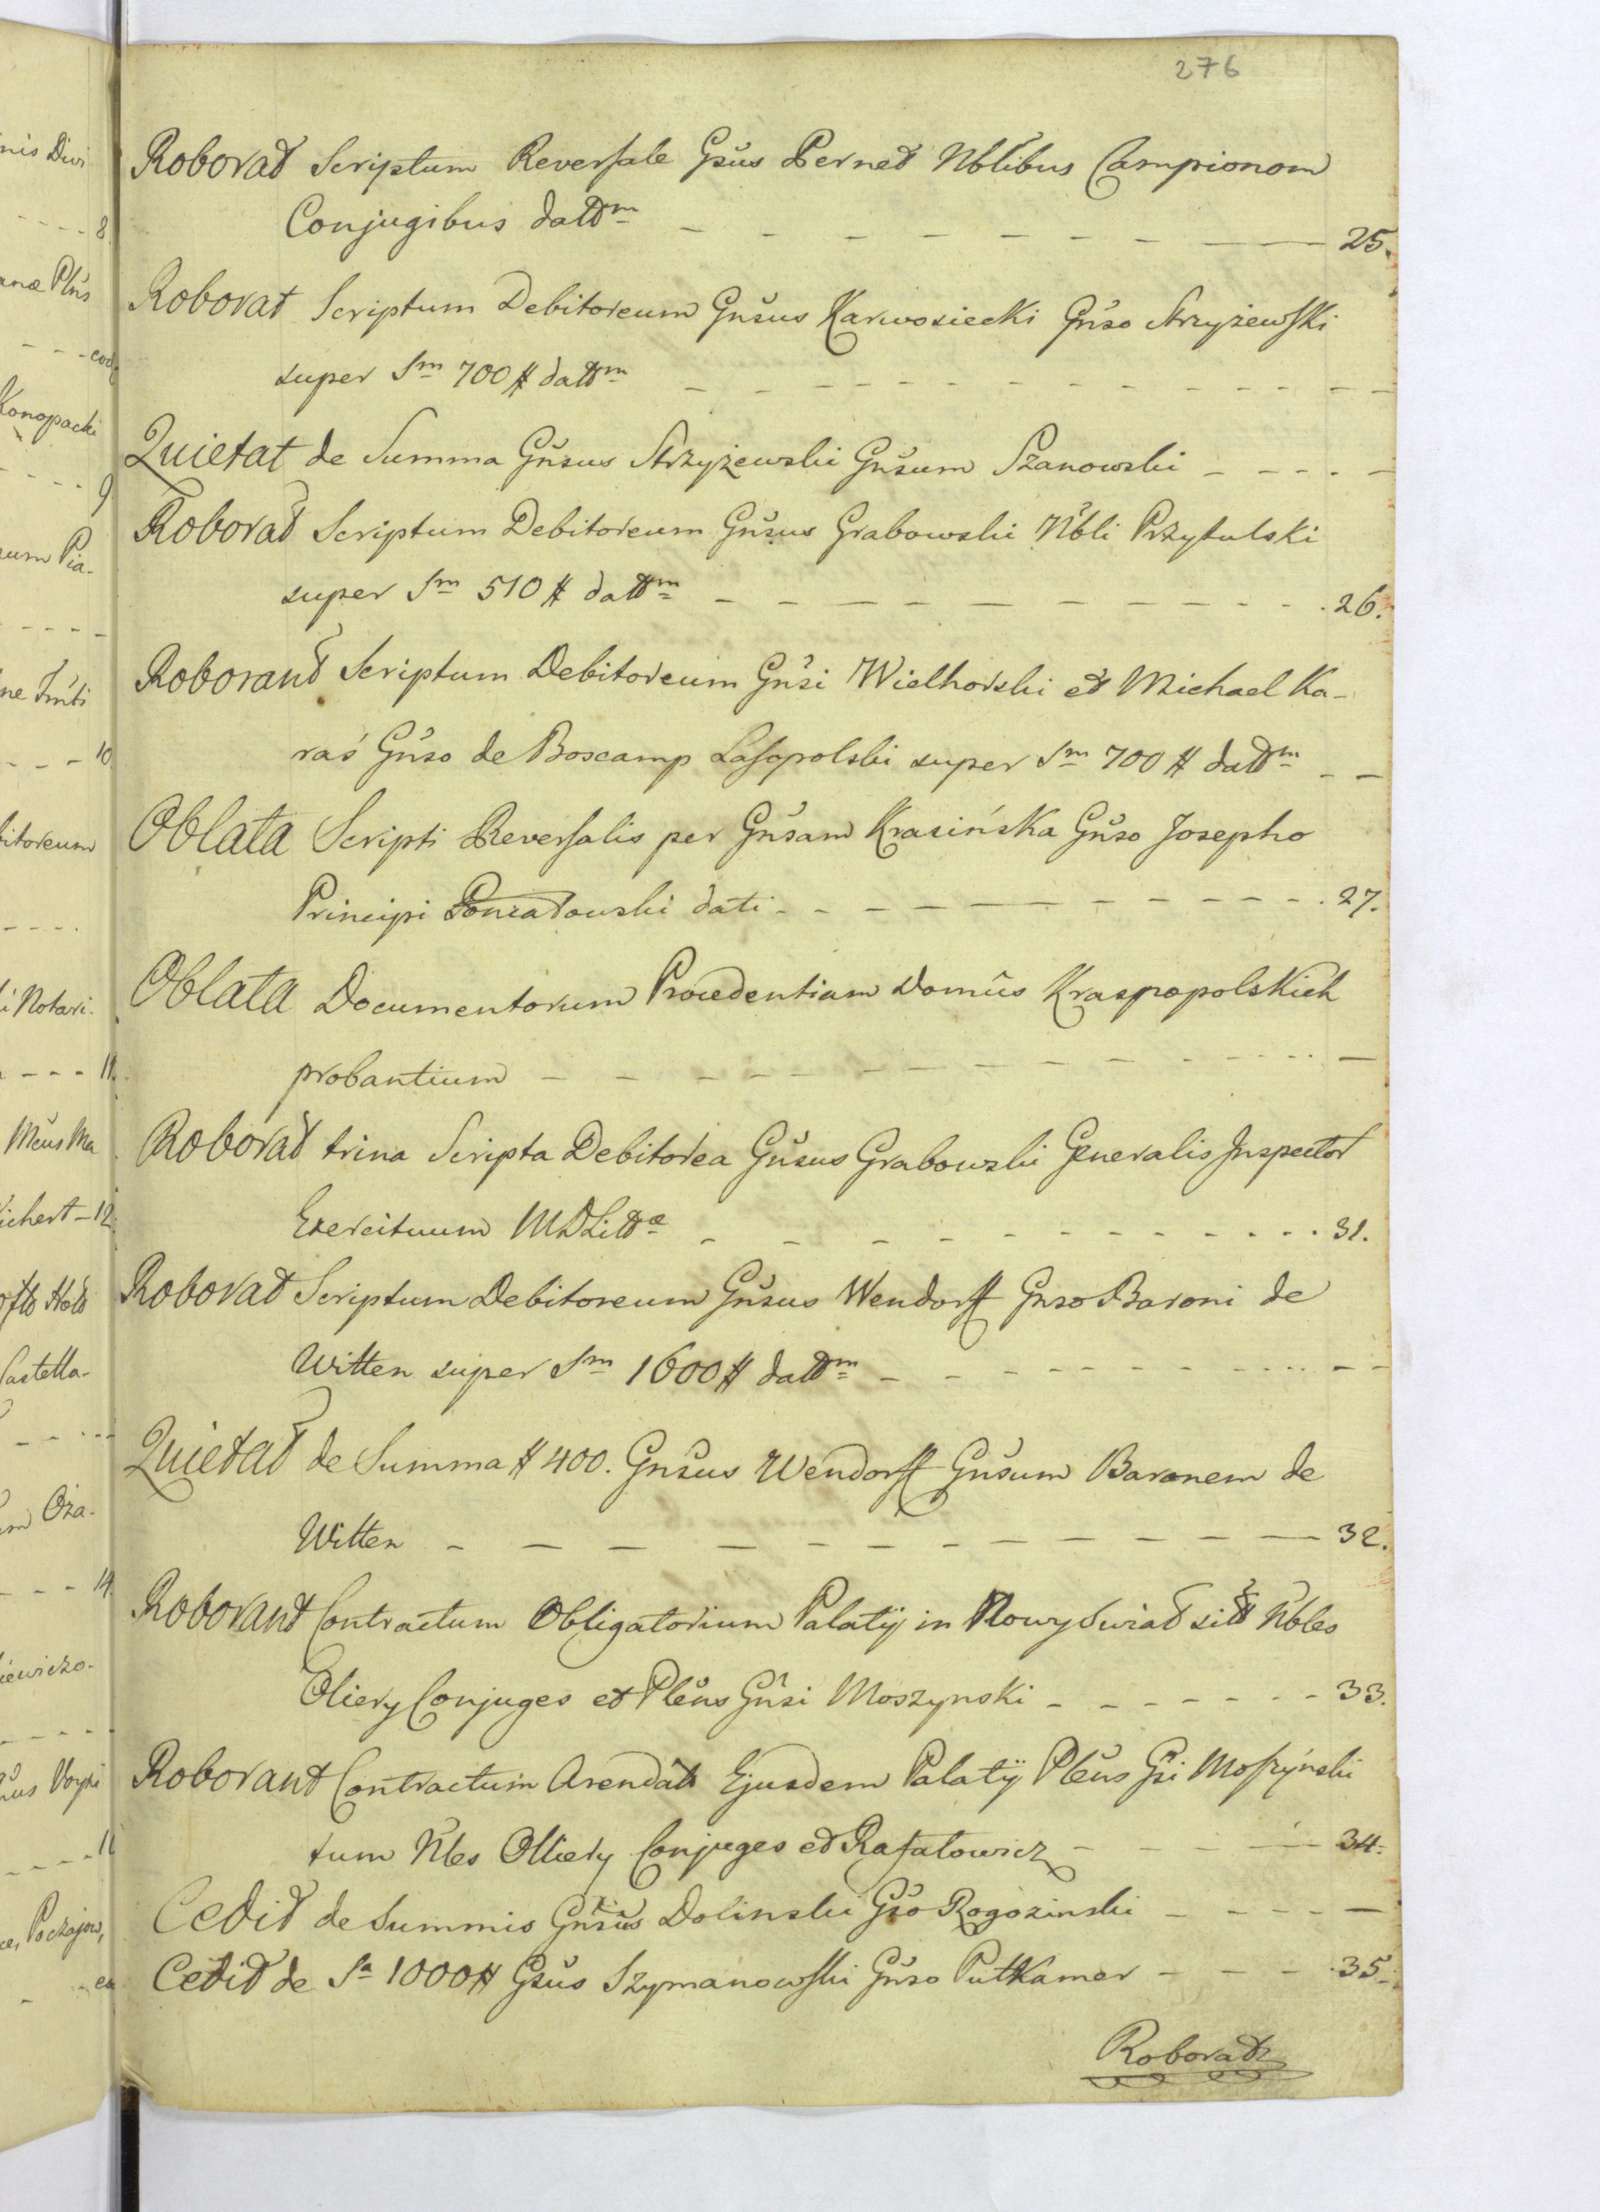 276
Roborat Scriptum Reversale Gsus Pernet Nblibus Campionom
Conjugibus dattm - - - - - - - - 25.
Roborat Scriptum Debitoreum Gnsus Karwosiecki Gnso Strzyżewski
super Sm 700 # dattm - - - - - - - -
Quietat de Summa Gnsus Strzyżewski Gnsum Szanowski - - - -
Roborat Scriptum Debitoreum Gnsus Grabowski Nbli Przytulski
super Sm 510 # dattm - - - - - - - - 26.
Roborant Scriptum Debitoreum Gnsi Wielhorski et Michael Ka-
raś Gnso de Boscamp Lasopolski super Sm 700 # dattm - -
Oblata Scripti Reversalis per Gnsam Krasińska Gnso Josepho
Principi Poniatowski dati - - - - - - - - 27.
Oblata Documentorum Procedentiam Domûs Kraspopolskich
probantium - - - - - - - -
Roborat trina Scripta Debitorea Gnsus Grabowski Generalis Inspector
Exercituum MDLittæ - - - - - - - - 31.
Roborat Scriptum Debitoreum Gnsus Wendorff Gnso Baroni de
Witten super Sm 1600 # dattm - - - - - - - -
Quietat de Summa # 400. Gnsus Wendorff Gnsum Baronem de
Witten - - - - - - - - 32.
Roborant Contractum Obligatorium Palatij in Nowy Swiat sitt Nbles
Oliery Conjuges et Plens Gnsi Moszynski - - - - - - 33.
Roborant Contractum Arendat Ejusdem Palatij Plens Gsi Moszyński
tum Nbles Olliery Conjuges et Rafałowicz - - - - 34.
Cedit de Summis Gnsus Dolinski Gso Rogozinski - - - - -
Cedit de Sa 1000 # Gsus Szymanowski Gnso Putkamer - - - 35.
Roborat